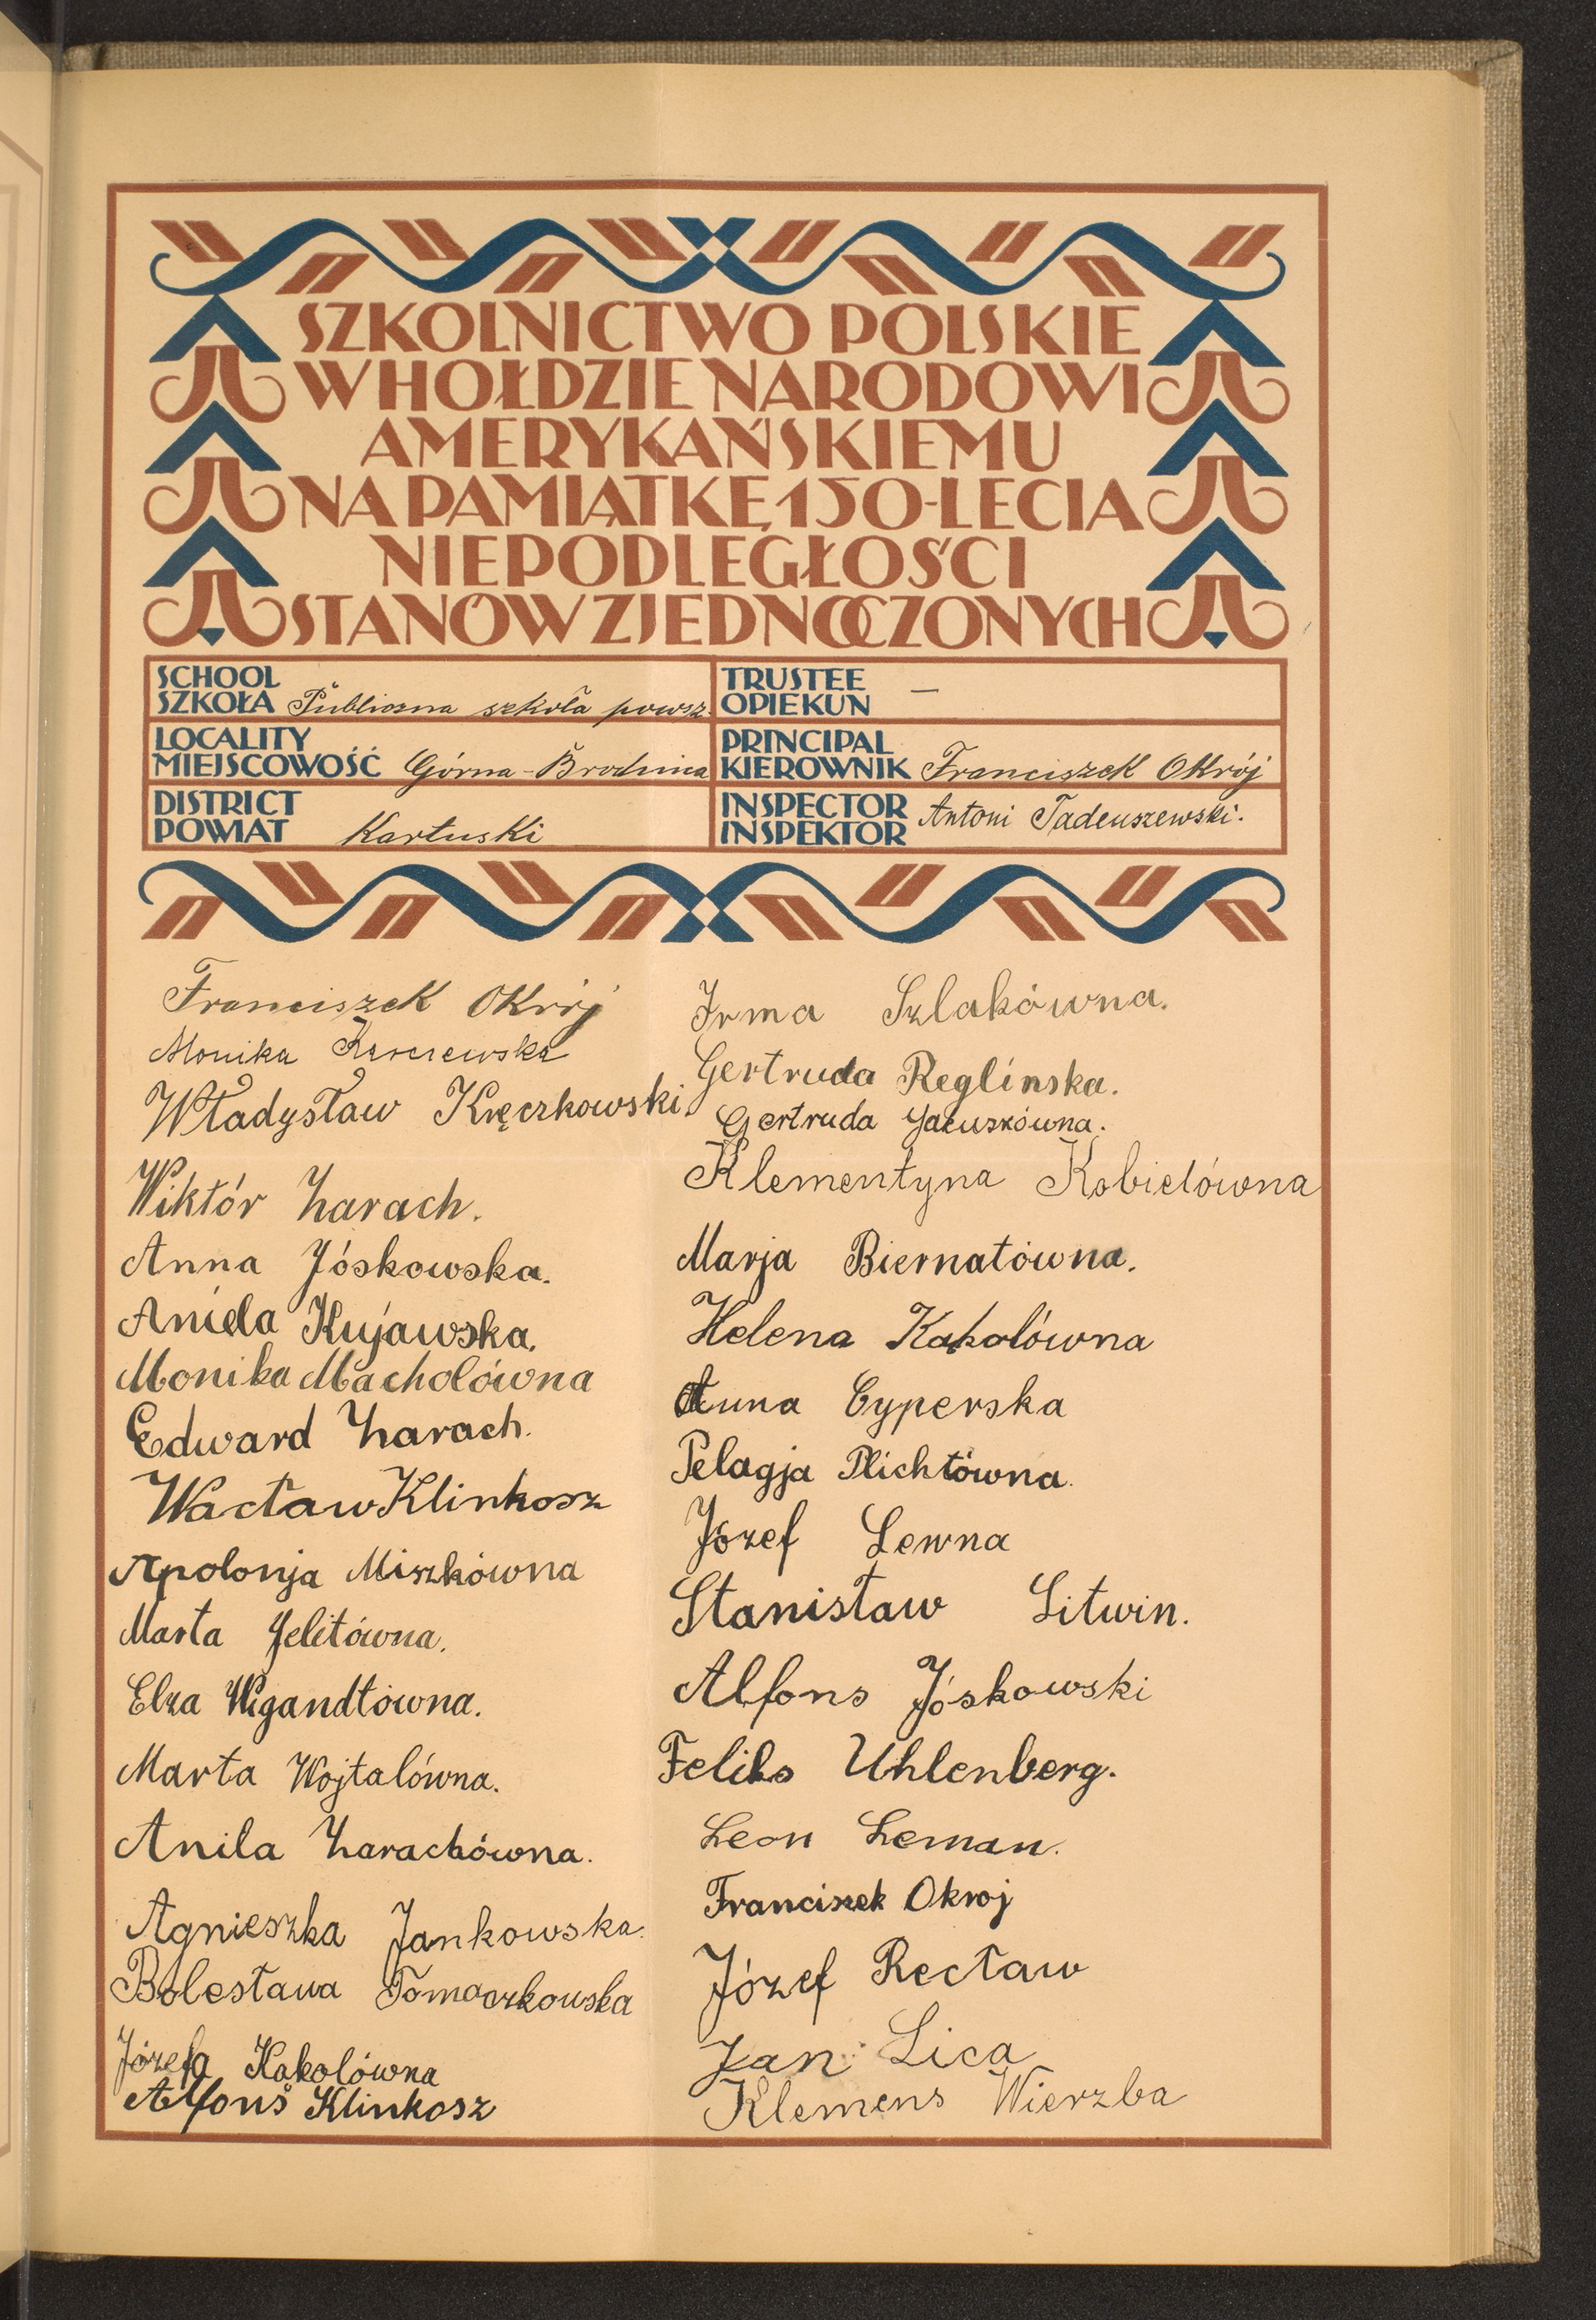 SZKOLNICTWO POLSKIE
W HOŁDZIE NARODOWI
AMERYKAŃSKIEMU
NA PAMIĄTKĘ 150-LECIA
NIEPODLEGŁOŚCI
STANÓW ZJEDNOCZONYCH
SCHOOL
SZKOŁA Publiczna szkoła powsz.
TRUSTEE
OPIEKUN —
LOCALITY
MIEJSCOWOŚĆ Górna-Brodnica
PRINCIPAL
KIEROWNIK Franciszek Okrój
DISTRICT
POWIAT Kartuski
INSPECTOR
INSPEKTOR Antoni Tadeuszewski.
Franciszek Okrój
Monika
Władysław Kręczkowski
Wiktór Zarach.
Anna Jóskowska.
Aniela Kujawska.
Monika Macholówna
Edward Zarach.
Wacław Klinkosz
Apolonja Miszkówna
Marta Jelitówna.
Elza Wigandtówna.
Marta Wojtalówna.
Anila Zarachówna.
Agnieszka Jankowska.
Bolesława Tomaczkowska
Józefa Kąkolówna
Alfons Klinkosz
Irma Szlakówna.
Gertruda Reglinska.
Gertruda
Klementyna Kobielówna
Marja Biernatówna.
Helena Kąkolówna
Anna Cyperska
Pelagja Plichtówna.
Józef Lewna
Stanisław Litwin.
Alfons Jóskowski
Feliks Uhlenberg.
Leon Leman.
Franciszek Okroj
Józef Recław
Jan Lica
Klemens Wierzba